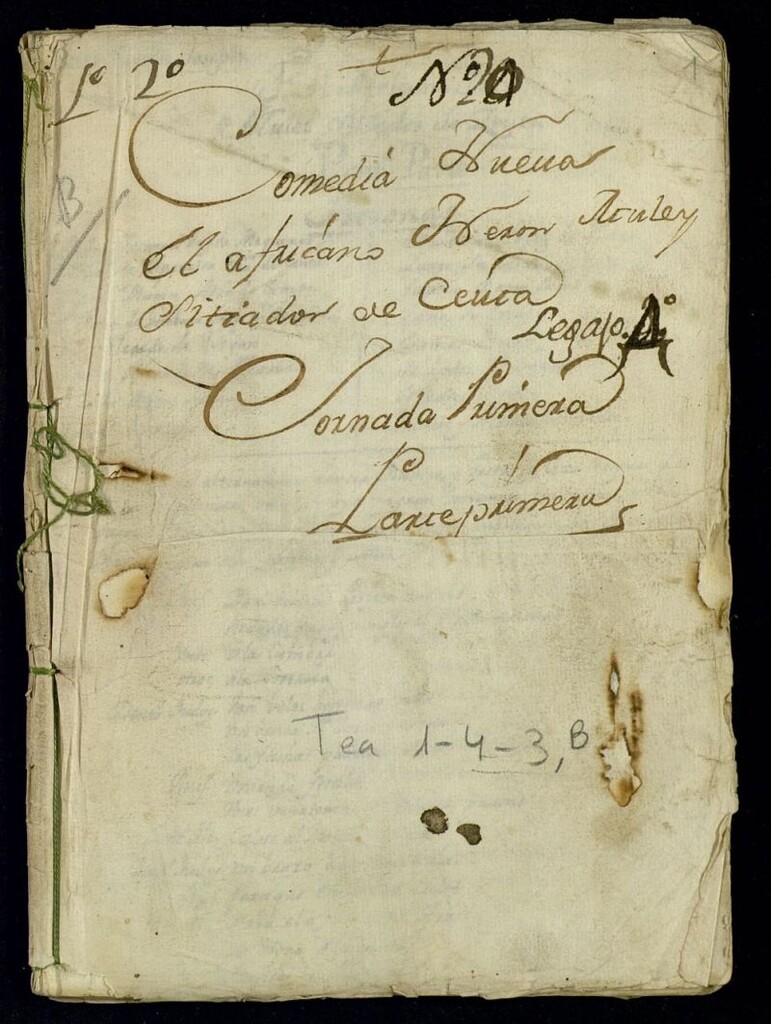 1º 2º
1
Comedia Nueva
B
El africano Neron Muley
Sitiador de Ceuta
Legajo.
Jornada Primera
Parte primera
Tea 1-4-3, B